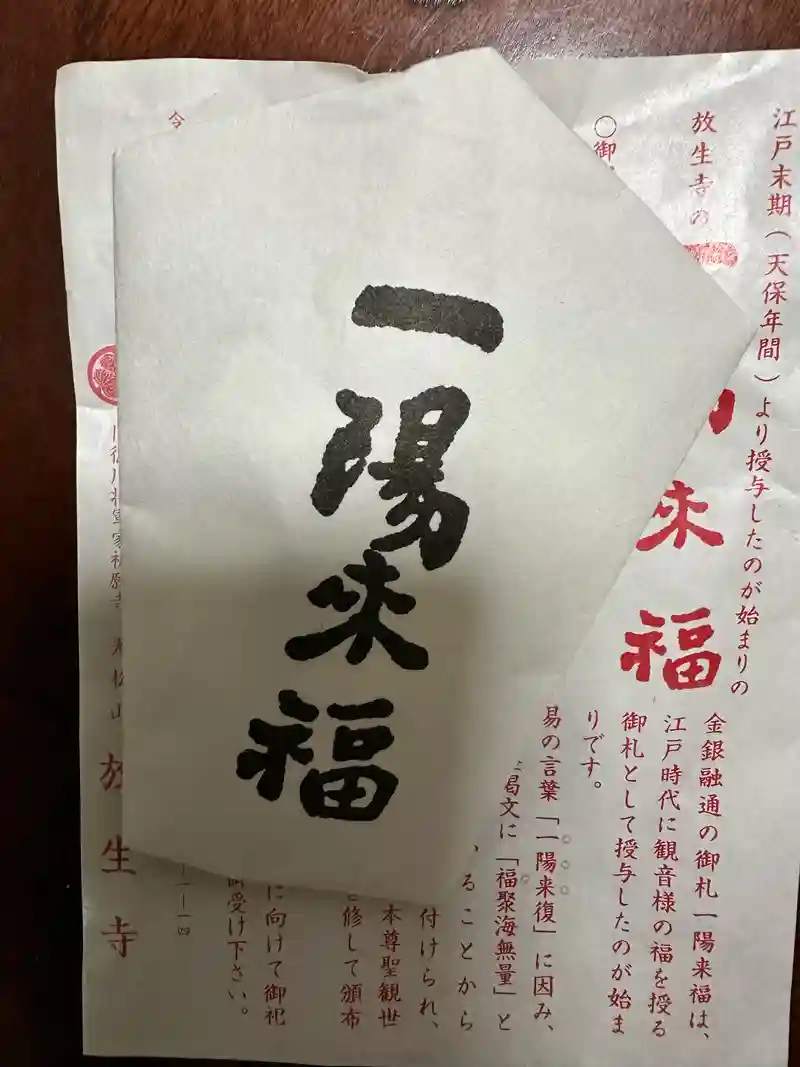 一陽来福
江戸末期(天保年間)より授与したのが始まりの
放生寺の
来福
○御
金銀融通の御札一陽来福は、
江戸時代に観音様の福を授る
御札として授与したのが始ま
りです。
易の言葉「一陽来復」に因み、
偈文に「福聚海無量」と
、ることから
付けられ、
本尊聖観世
修して頒布
に向けて御祀
受け下さい。
令
放生寺
一一一四